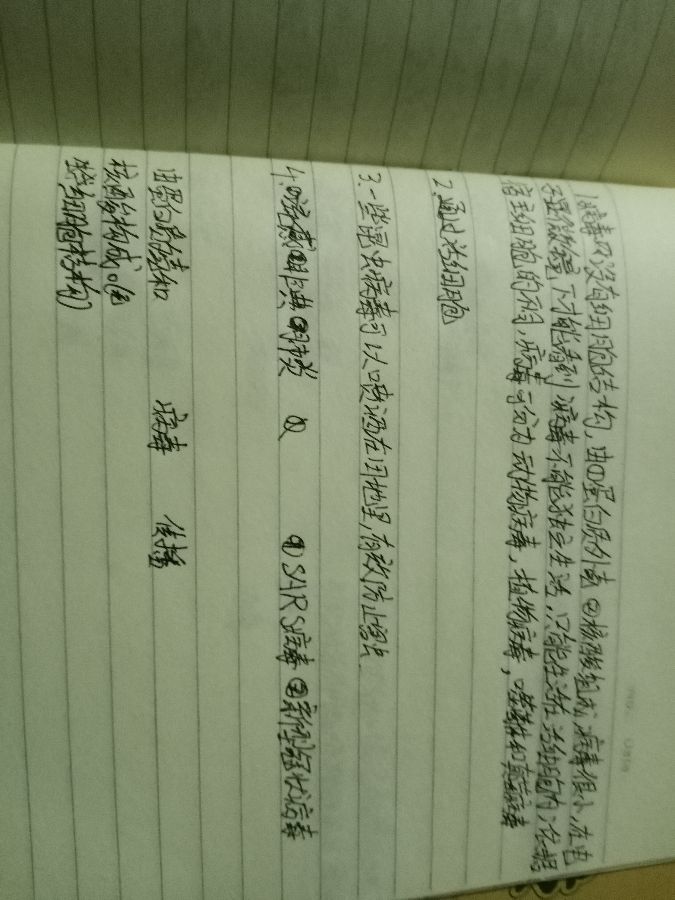 1.病毒 没有细胞结构,由①蛋白质外壳②核酸组成 病毒很小,在电
子显微镜下才能看到 病毒不能独立生活,只能生活在活细胞内,依据
宿主细胞的不同,病毒可分为动物病毒,植物病毒,噬菌体和真菌病毒
2.通过活细胞
3.一些昆虫病毒可以喷洒在田地里,有效防止害虫.
4. ①SARS病毒②新型冠状病毒
由蛋白质外壳和 病毒 传播
核酸构成。(因
无细胞结构)